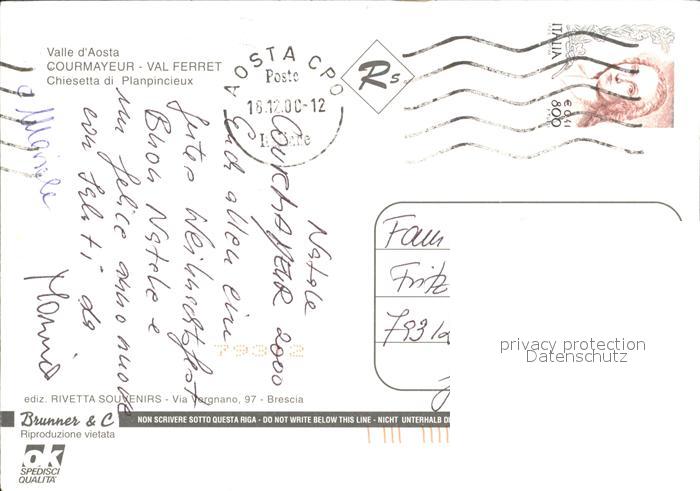 Valle d'Aosta
COURMAYEUR - VAL FERRET
Chiesetta di Planpincieux
AOSTA CPO
Poste
18.12.00-12
Rs
ITALIA
800
€ 0,41
Natale
COURMAYEUR 2000
Euch allen ein
gutes Weihnachtsfest
Buon Natale e
un felice anno nuovo
con saluti da
Fam
Fritz
7931
79312
privacy protection
Datenschutz
ediz. RIVETTA SOUVENIRS - Via Vergnano, 97 - Brescia
Brunner & C
NON SCRIVERE SOTTO QUESTA RIGA - DO NOT WRITE BELOW THIS LINE - NICHT UNTERHALB D
Riproduzione vietata
ok
SPEDISCI
QUALITA'